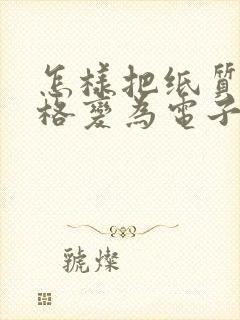 怎樣把纸質
格變為電子
號燦